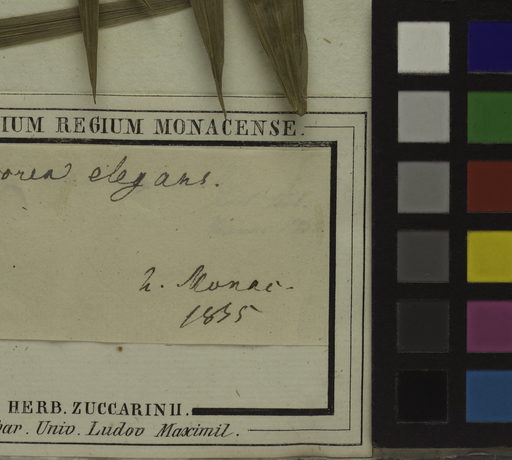 IUM REGIUM MONACENSE.
elegans.
h. Monac.
1835
HERB. ZUCCARINII.
bar. Univ. Ludov Maximil.